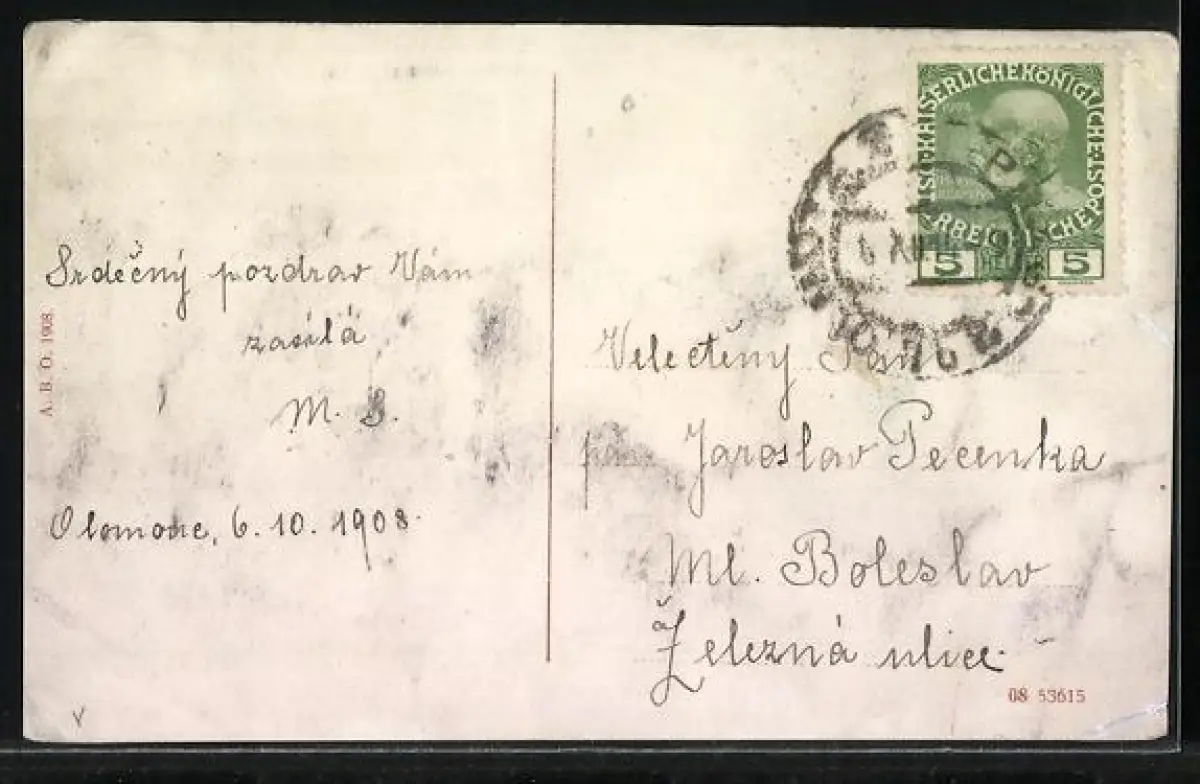 Srdečný pozdrav Vám
zasílá
M. S.
Olomouc, 6. 10. 1908.
A. B. O. 1908
KAISERLICHE KÖNIGLICHE
POST
1908
5 HELLER 5
6 XII
Velectěný Pan
pán Jaroslav Pecenka
Ml. Boleslav
Železná ulice.
08 53615